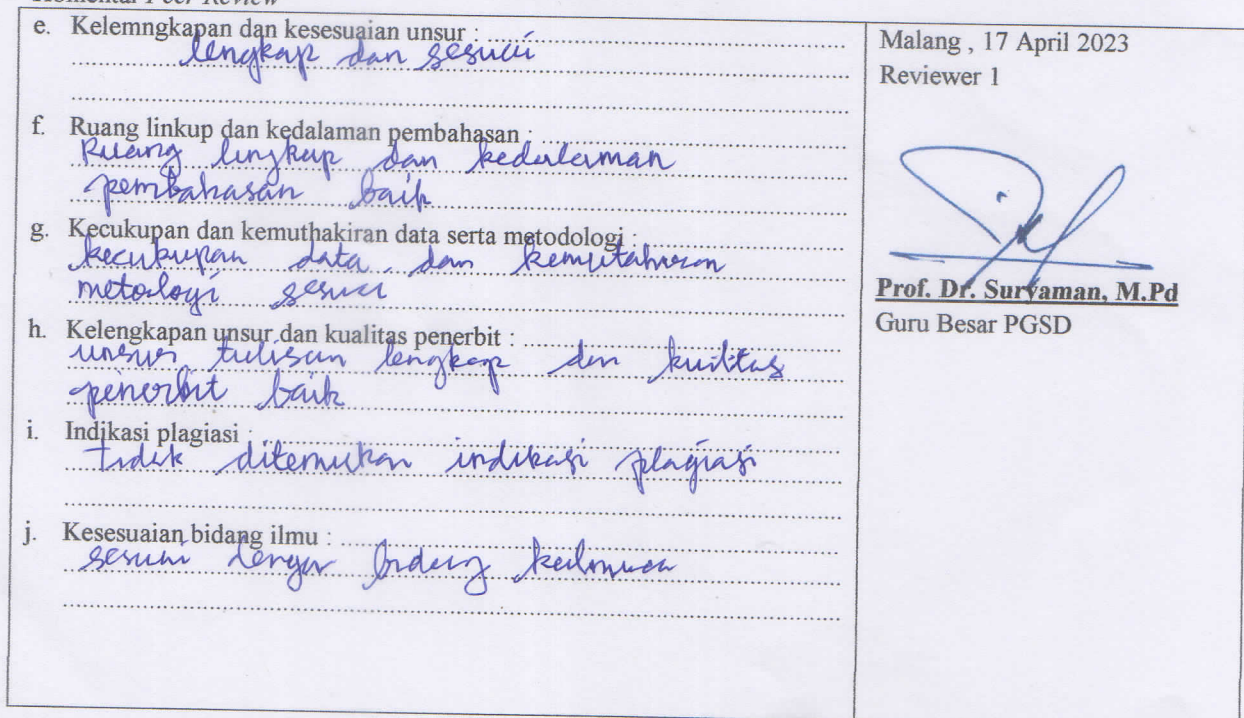 Komentar Peer Review
e. Kelemngkapan dan kesesuaian unsur :
lengkap dan sesuai
f. Ruang linkup dan kedalaman pembahasan :
Ruang lingkup dan kedalaman
pembahasan baik
g. Kecukupan dan kemuthakiran data serta metodologi :
kecukupan data dan kemutahiran
metologi sesuai
h. Kelengkapan unsur dan kualitas penerbit :
unsur tulisan lengkap dan kualitas
penerbit baik
i. Indikasi plagiasi :
tidak ditemukan indikasi plagiasi
j. Kesesuaian bidang ilmu :
sesuai dengan bidang keilmuan
Malang , 17 April 2023
Reviewer 1
Prof. Dr. Suryaman, M.Pd
Guru Besar PGSD